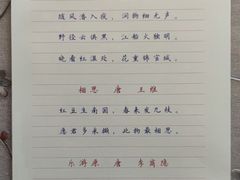 随风潜入夜，润物细无声。
野径云俱黑，江船火独明。
晓看红湿处，花重锦官城。
相思 唐 王维
红豆生南国，春来发几枝。
愿君多采撷，此物最相思。
乐游原 唐 李商隐